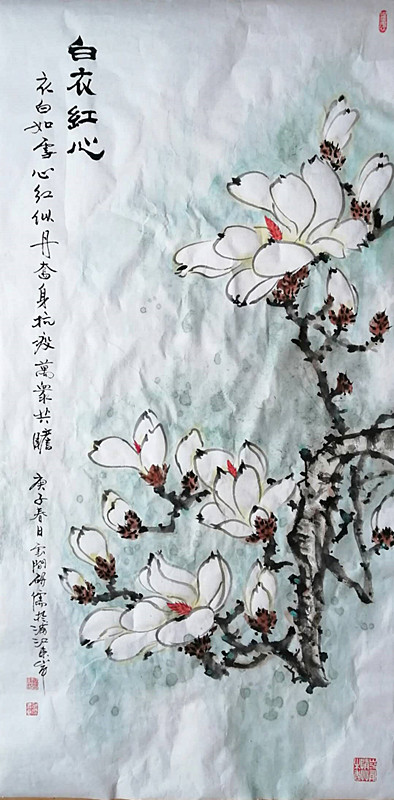 白衣红心
衣白如雪心红似丹奋身抗疫萬眾共瞻
庚子春日